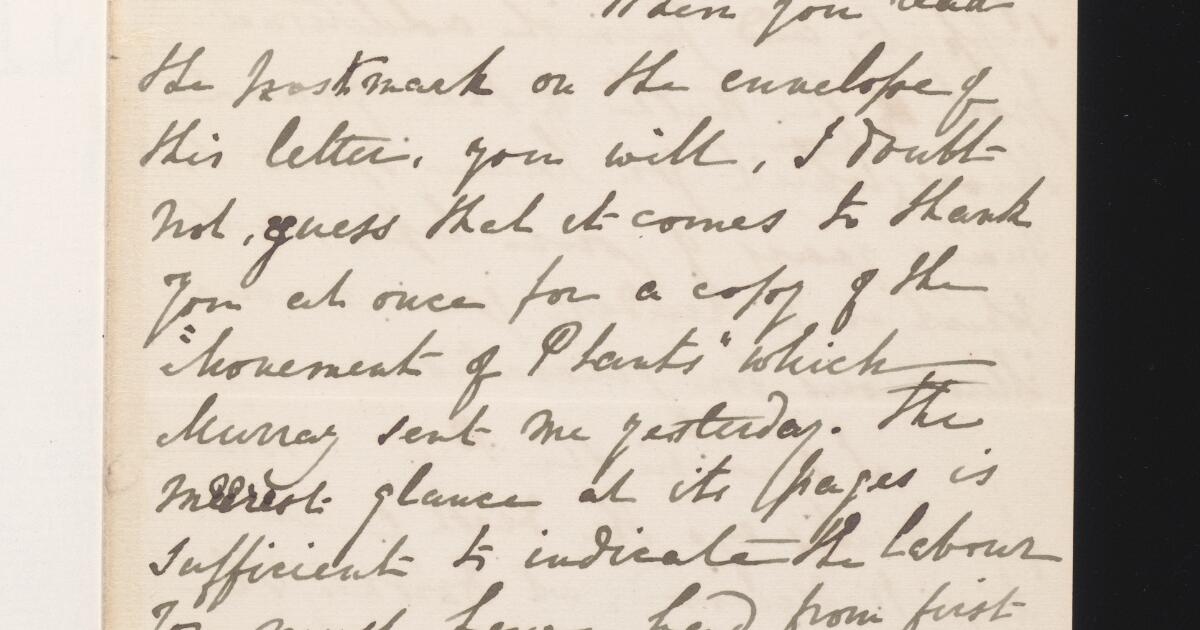 When you read
the postmark on the envelope of
this letter, you will, I doubt
not, guess that it comes to thank
you at once for a copy of the
"Movement of Plants" which
Murray sent me yesterday. The
merest glance at its pages is
sufficient to indicate the labour
you must have had from first